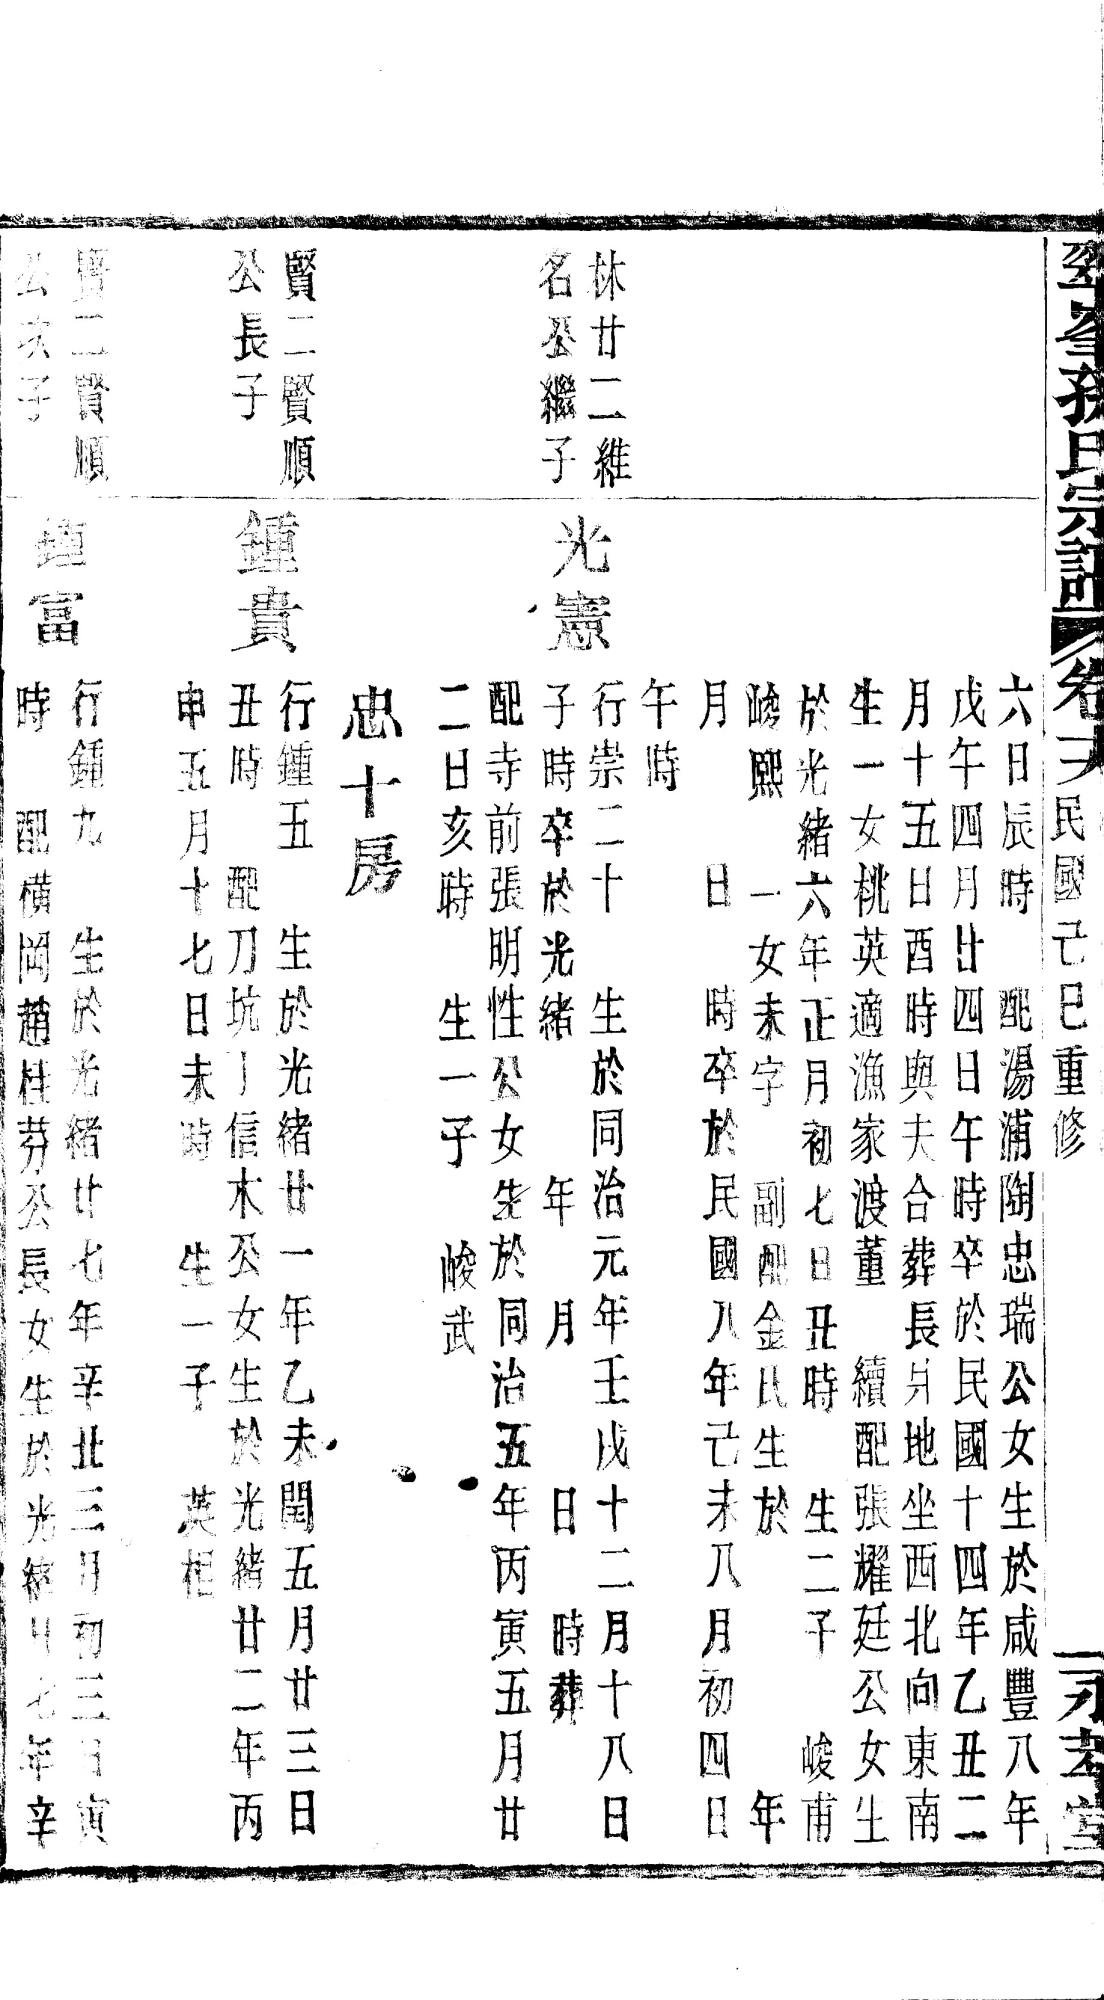 翠峯孫氏宗譜 卷十六 民國己巳重修 永孝堂
六日辰時 配湯浦陶忠瑞公女生於咸豐八年
戊午四月廿四日午時卒於民國十四年乙丑二
月十五日酉時與夫合葬長爿地坐西北向東南
生一女桃英適漁家渡董 續配張耀廷公女生
於光緒六年正月初七日丑時 生二子 峻甫
峻熙 一女未字 副配金氏生於 年
月 日 時卒於民國八年己未八月初四日
午時
林廿二維
名公繼子
光憲
行崇二十 生於同治元年壬戌十二月十八日
子時卒於光緒 年 月 日 時葬
配寺前張明性公女生於同治五年丙寅五月廿
二日亥時 生一子 峻武
忠十房
賢二賢順
公長子
鍾貴
行鍾五 生於光緒廿一年乙未閏五月廿三日
丑時 配刀坑丁信木公女生於光緒廿二年丙
申五月十七日未時 生一子 英相
賢二賢順
公次子
鍾富
行鍾九 生於光緒廿七年辛丑三月初三日寅
時 配橫岡趙桂芬公長女生於光緒廿七年辛